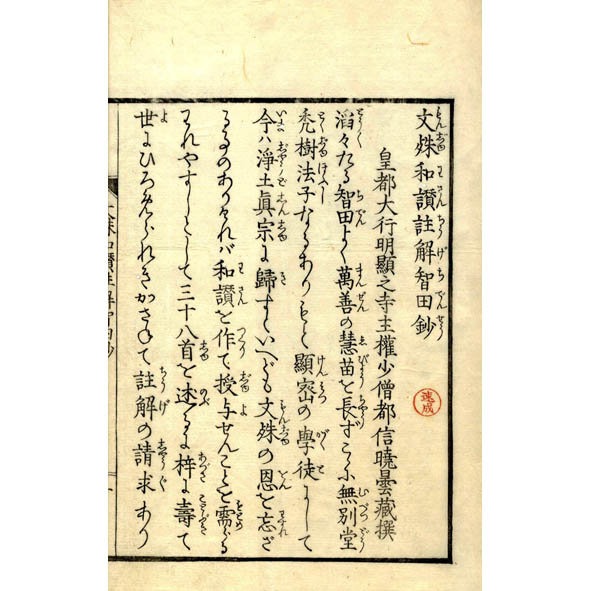 文殊和讃註解智田鈔
皇都大行明顯之寺主權少僧都信曉曇藏撰
滔々たる智田よく萬善の慧苗を長ずこゝに無別堂
禿樹法子なるありもと顯密の學徒にして
今ハ淨土眞宗に歸すといへども文殊の恩を忘ざ
るものありそれバ和讃を作て授与せんことを需らる
それやすしとして三十八首を述るに梓に壽て
世にひろめられきかさねて註解の請求あり
速成